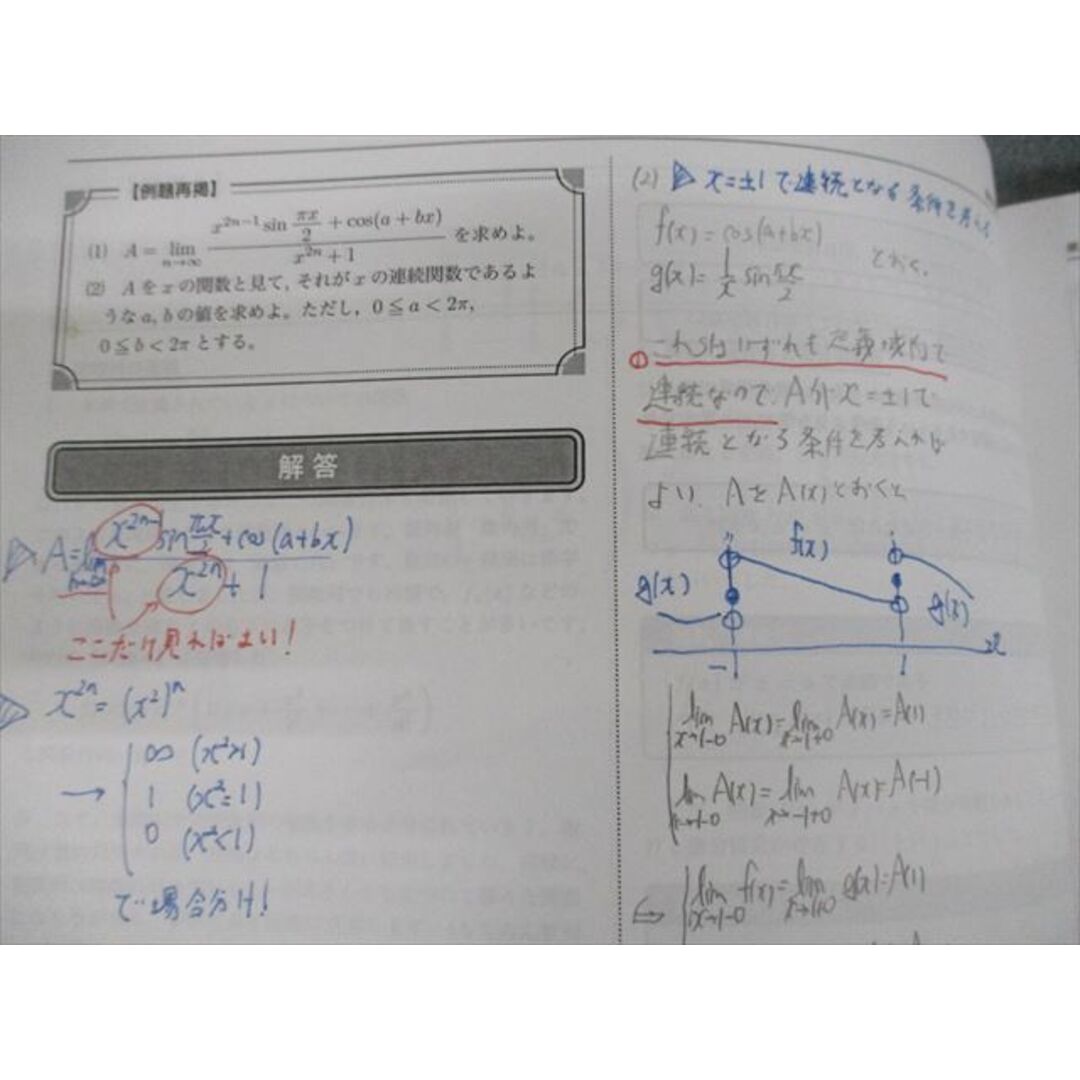 【例題再掲】
(1) A = lim n→∞ (x^{2n-1} sin πx/2 + cos(a+bx)) / (x^{2n}+1) を求めよ。
(2) Aをxの関数と見て,それがxの連続関数であるよ
うなa,bの値を求めよ。ただし,0≦a<2π,
0≦b<2πとする。
解答
A=lim n→∞ (x^{2n-1} sin πx/2 + cos(a+bx)) / (x^{2n}+1)
ここだけ見ればよい!
x^{2n} = (x²)^n
→ { ∞ (x²>1)
1 (x²=1)
0 (x²<1)
で場合分け!
(2) x=±1で連続となる条件を考える
f(x)=cos(a+bx)
g(x)=1/x sin πx/2 とおく.
① これらはいずれも定義域内で
連続なので、Aがx=±1で
連続となる条件を考えれば
よい. AをA(x)とおくと
f(x)
g(x)
g(x)
-1 1 x
lim x→1-0 A(x)=lim x→1+0 A(x)=A(1)
lim x→-1-0 A(x)=lim x→-1+0 A(x)=A(-1)
⇔ lim x→1-0 f(x)=lim x→1+0 g(x)=A(1)